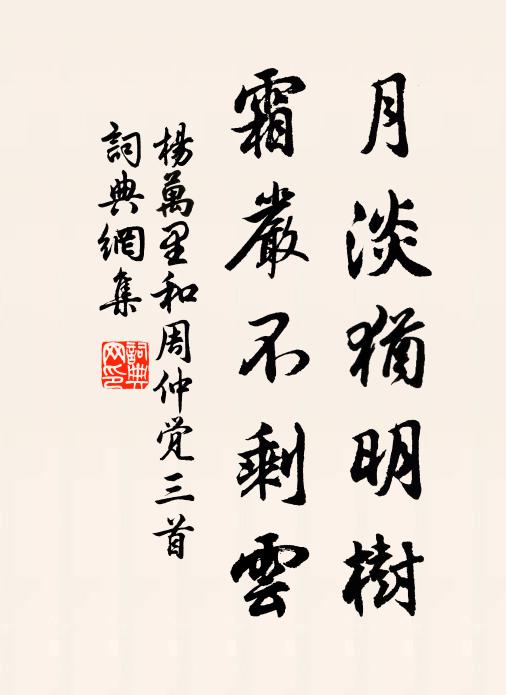 月淡猶明樹
霜嚴不剩雲
楊萬里和周仲觉三首
詞典網集
詞典网印